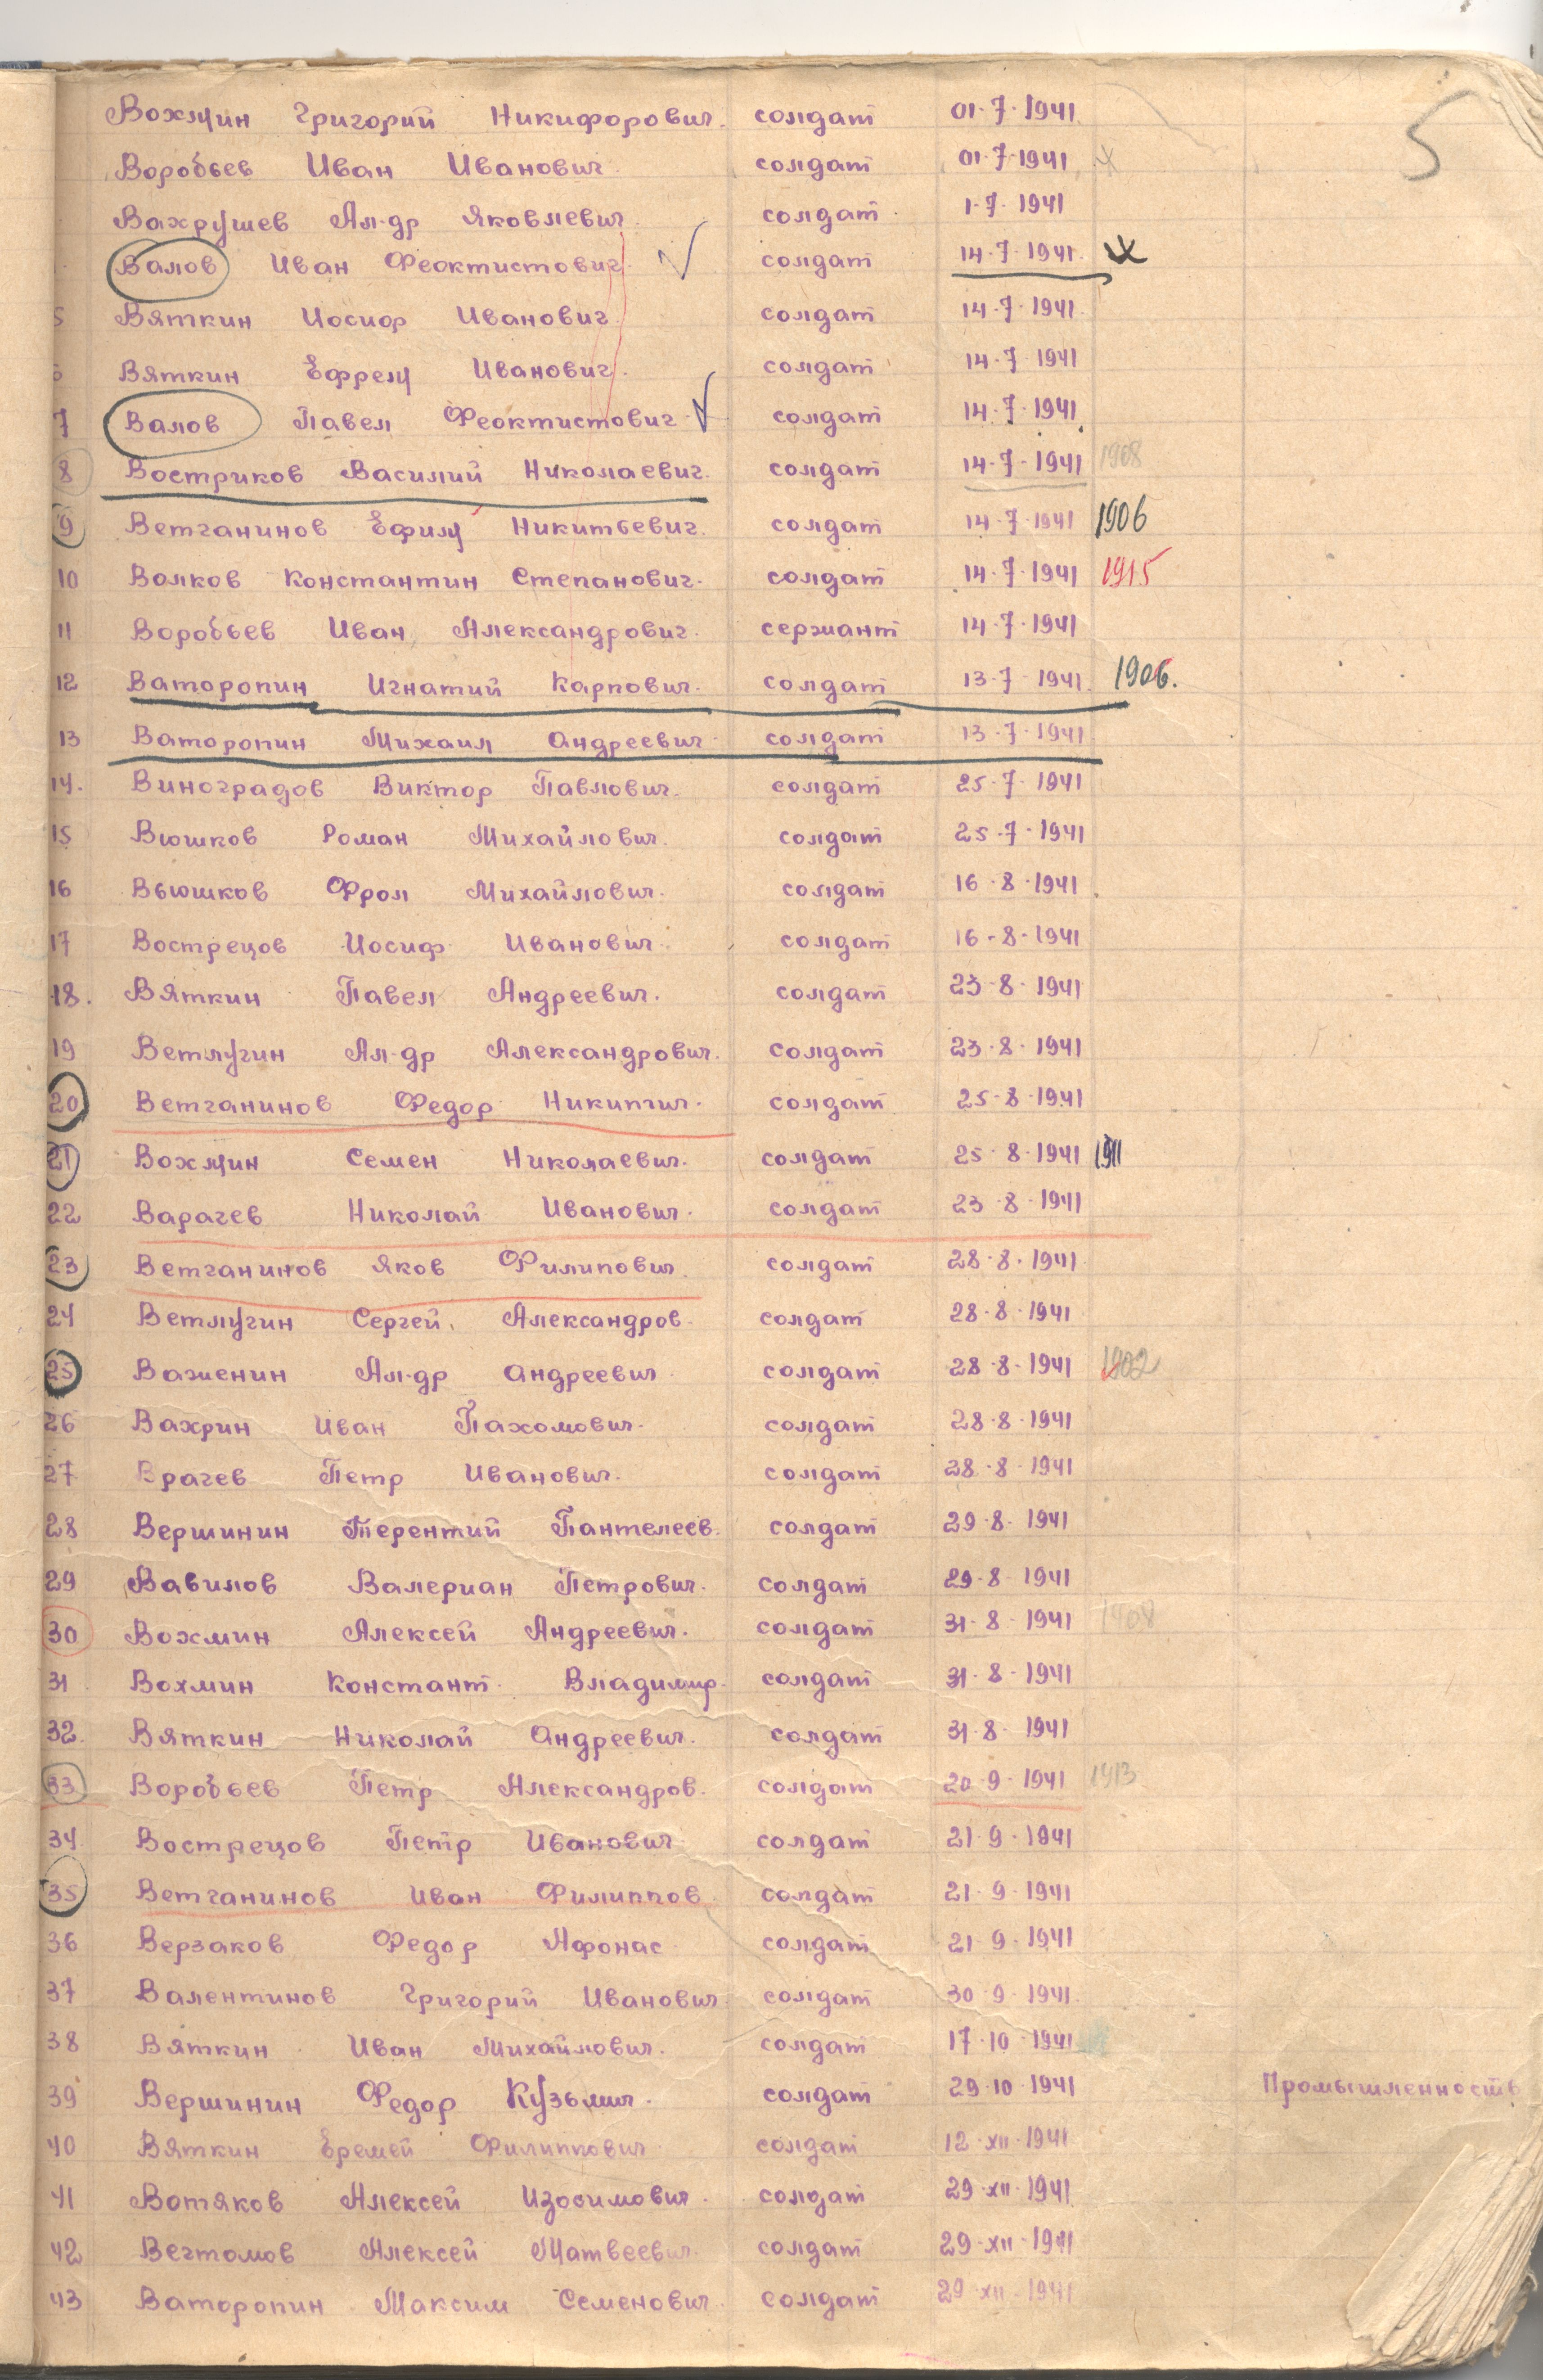 5
Вохмин Григорий Никифорович. солдат 01·7·1941
Воробьев Иван Иванович. солдат 01·7·1941 х
Вахрушев Ал-др Яковлевич. солдат 1·7·1941
Валов Иван Феоктистович. солдат 14·7·1941
5 Вяткин Иосиф Иванович. солдат 14·7·1941
6 Вяткин Ефрем Иванович. солдат 14·7·1941
7 Валов Павел Феоктистович солдат 14·7·1941
8 Востриков Василий Николаевич. солдат 14·7·1941 1908
9 Ветчанинов Ефим Никитьевич. солдат 14·7·1941 1906
10 Волков Константин Степанович. солдат 14·7·1941 1915
11 Воробьев Иван Александрович. сержант 14·7·1941
12 Ваторопин Игнатий Карпович. солдат 13·7·1941. 1906.
13 Ваторопин Михаил Андреевич. солдат 13·7·1941
14. Виноградов Виктор Павлович. солдат 25·7·1941
15 Вюшков Роман Михайлович. солдат 25·7·1941
16 Вьюшков Фрол Михайлович. солдат 16·8·1941
17 Вострецов Иосиф Иванович. солдат 16-8-1941
18. Вяткин Павел Андреевич. солдат 23·8·1941
19 Ветлугин Ал-др Александрович. солдат 23·8·1941
20 Ветчанинов Федор Никитич. солдат 25·8·1941
21 Вохмин Семен Николаевич. солдат 25·8·1941 1911
22 Варачев Николай Иванович. солдат 23·8·1941
23 Ветчанинов Яков Филипович. солдат 28·8·1941
24 Ветлугин Сергей Александров. солдат 28·8·1941
25 Важенин Ал-др Андреевич. солдат 28·8·1941 1902
26 Вахрин Иван Пахомович. солдат 28·8·1941
27 Врачев Петр Иванович. солдат 28·8·1941
28 Вершинин Терентий Пантелеев. солдат 29·8·1941
29 Вавилов Валериан Петрович. солдат 29·8·1941
30 Вохмин Алексей Андреевич. солдат 31·8·1941 1908
31 Вохмин Констант. Владимир. солдат 31·8·1941
32. Вяткин Николай Андреевич. солдат 31·8·1941
33 Воробьев Петр Александров. солдат 20·9·1941 1913
34 Вострецов Петр Иванович солдат 21·9·1941
35 Ветчанинов Иван Филиппов. солдат 21·9·1941
36 Верзаков Федор Афонас. солдат 21·9·1941
37 Валентинов Григорий Иванович солдат 30·9·1941.
38 Вяткин Иван Михайлович. солдат 17·10·1941
39 Вершинин Федор Кузьмич. солдат 29·10·1941 Промышленность
40 Вяткин Еремей Филиппович. солдат 12·XII·1941
41 Вотяков Алексей Изосимович. солдат 29·XII·1941
42 Вечтомов Алексей Матвеевич. солдат 29·XII·1941
43 Ваторопин Максим Семенович. солдат 29·XII·1941